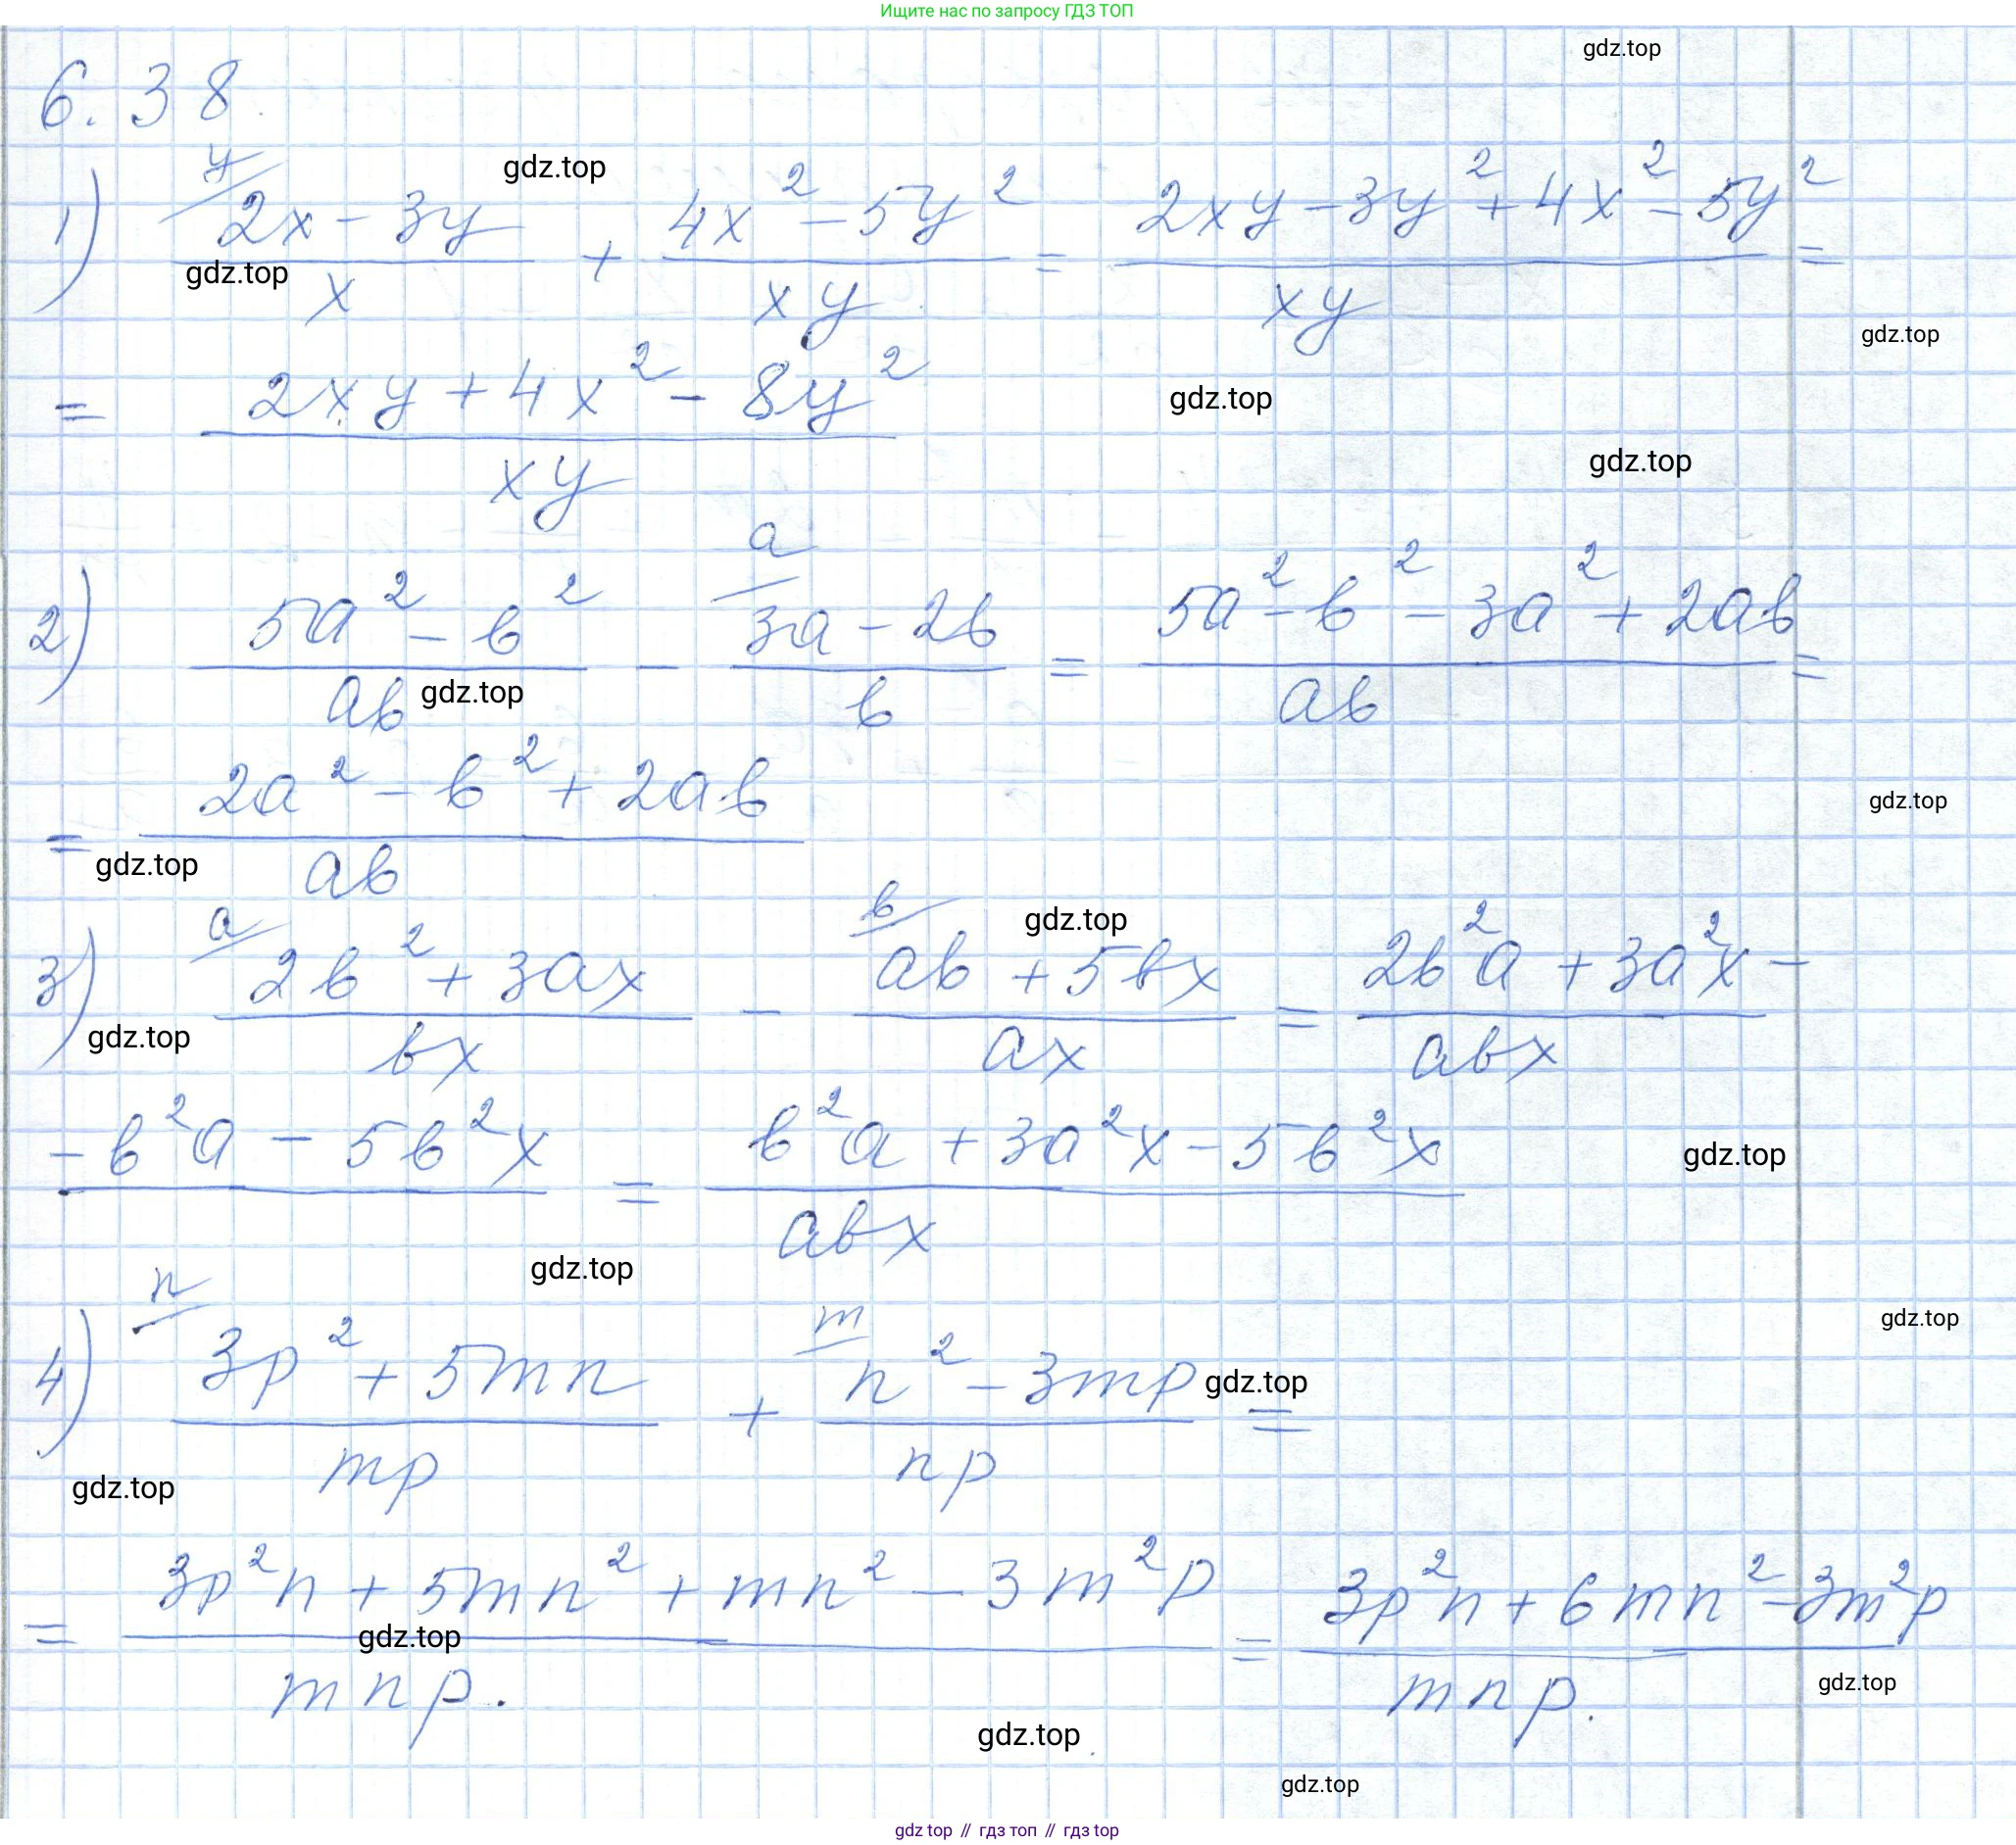 Ищите нас по запросу ГДЗ ТОП
gdz.top
6.38.
y
gdz.top
1) (2x - 3y)/x + (4x² - 5y²)/(xy) = (2xy - 3y² + 4x² - 5y²)/(xy) =
gdz.top
gdz.top
= (2xy + 4x² - 8y²)/(xy)
gdz.top
gdz.top
a
2) (5a² - b²)/(ab) - (3a - 2b)/b = (5a² - b² - 3a² + 2ab)/(ab) =
gdz.top
= (2a² - b² + 2ab)/(ab)
gdz.top
gdz.top
a b
gdz.top
3) (2b² + 3ax)/(bx) - (ab + 5bx)/(ax) = (2b²a + 3a²x -)/(abx)
gdz.top
- b²a - 5b²x = (b²a + 3a²x - 5b²x)/(abx)
gdz.top
gdz.top
n m
gdz.top
4) (3p² + 5mn)/(mp) + (n² - 3mp)/(np) =
gdz.top
gdz.top
= (3p²n + 5mn² + mn² - 3m²p)/(mnp.) = (3p²n + 6mn² - 3m²p)/(mnp.)
gdz.top
gdz.top
gdz.top
gdz.top
gdz top // гдз топ // gdz top